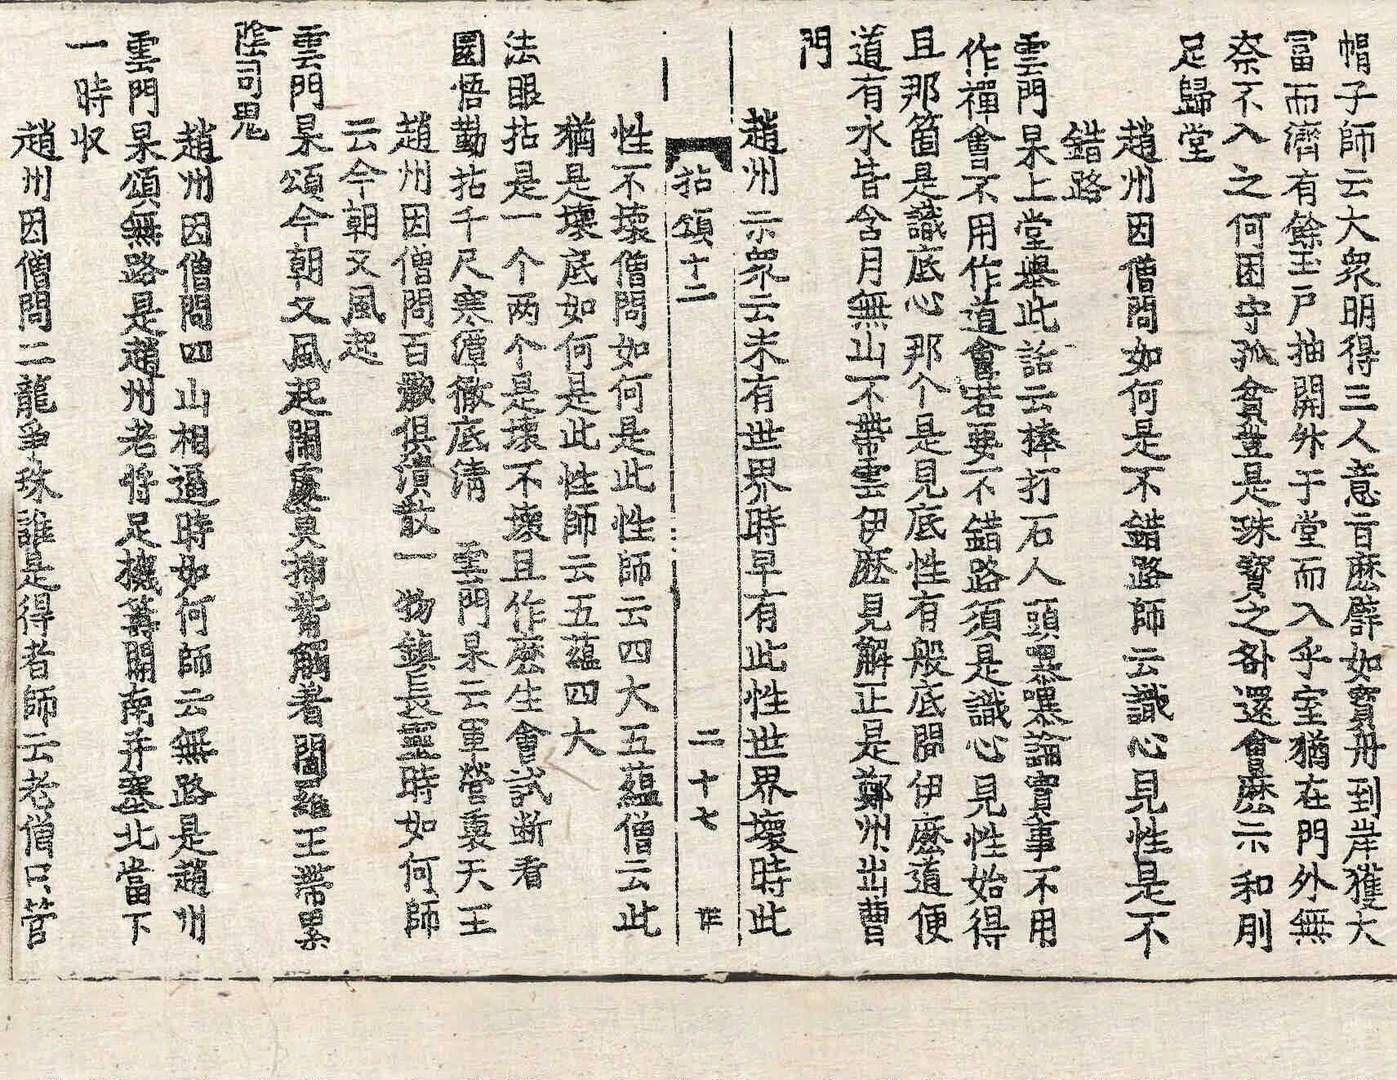 帽子師云大衆明得三人意旨麽譬如寳舟到岸獲大
冨而濟有餘玉戸抽開外于堂而入乎室猶在門外無
奈不入之何困守孤貧豈是珠寳之咎還會麽示和刖
足歸堂
趙州因僧問如何是不錯路師云識心見性是不
錯路
雲門杲上堂舉此話云棒打石人頭嚗嚗論實事不用
作禪會不用作道會若要不錯路須是識心見性始得
且那箇是識底心那个是見底性有般底聞伊麽道便
道有水皆含月無山不帶雲伊麽見解正是鄭州出曹
門
趙州示衆云未有世界時早有此性世界壞時此
拈頌十二 二十七
性不壞僧問如何是此性師云四大五蘊僧云此
猶是壞底如何是此性師云五蘊四大
法眼拈是一个两个是壞不壞且作麽生會試断看
圜悟勤拈千尺寒潭徹底清 雲門杲云軍營裏天王
趙州因僧問百骸俱潰散一物鎮長靈時如何師
云今朝又風起
雲門杲頌今朝又風起閙處莫揷觜觸着閻羅王帶累
陰司鬼
趙州因僧問四山相逼時如何師云無路是趙州
雲門杲頌無路是趙州老将足機籌関南并塞北當下
一時收
趙州因僧問二龍爭珠誰是得者師云老僧只管